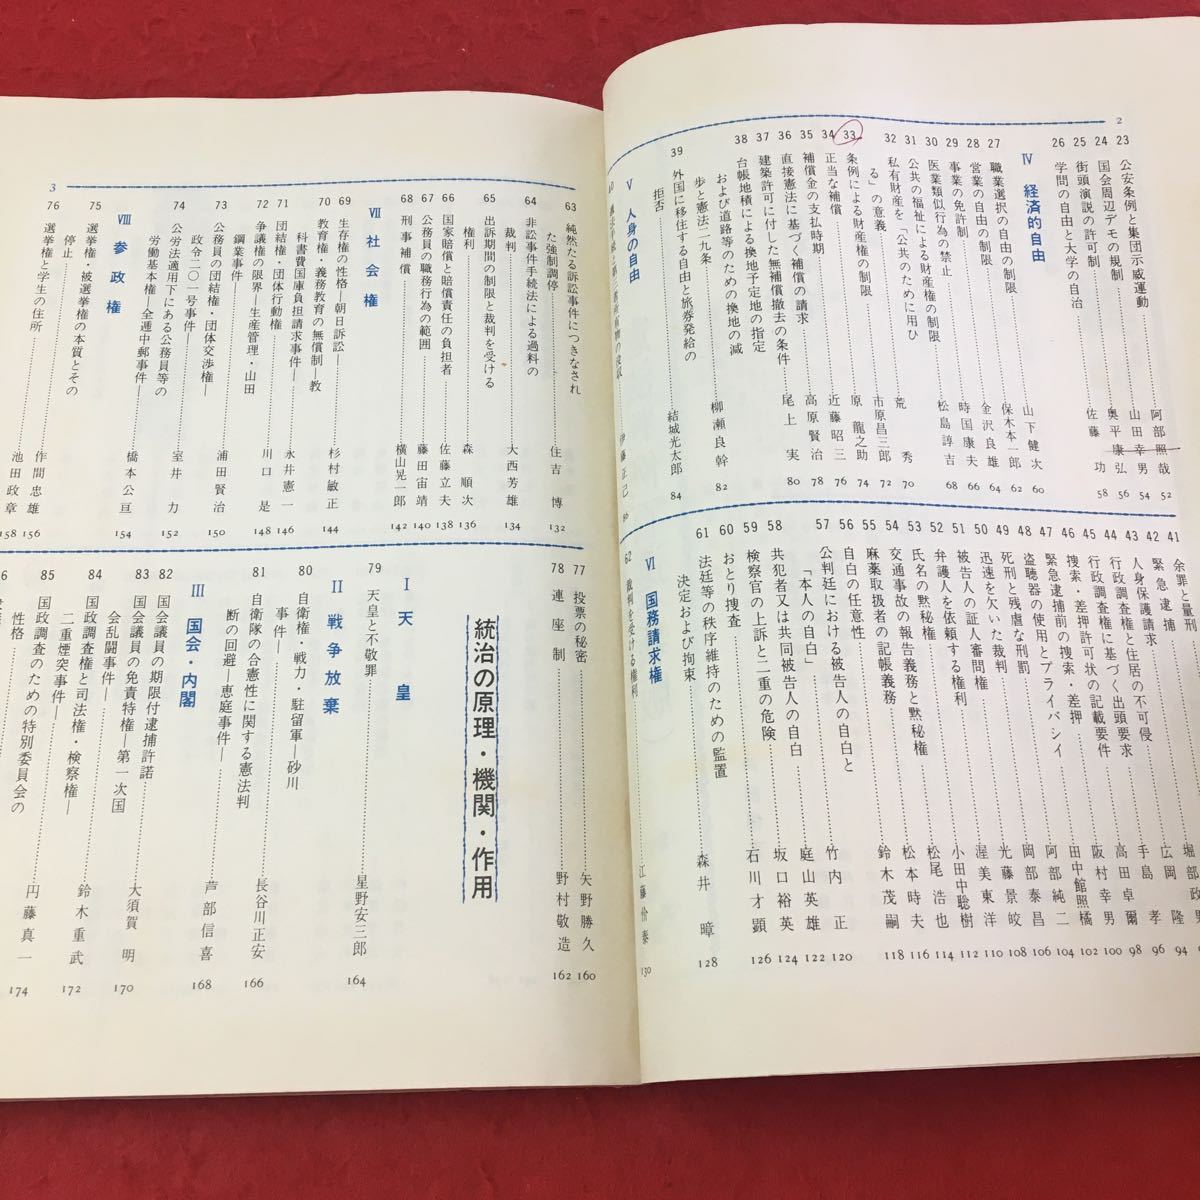 2
23 公安条例と集団示威運動 阿部照哉 52
24 国会周辺デモの規制 山田幸男 54
25 街頭演説の許可制 奥平康弘 56
26 学問の自由と大学の自治 佐藤功 58
Ⅳ 経済的自由
27 職業選択の自由の制限 山下健次 60
28 営業の自由の制限 保木本一郎 62
29 事業の免許制 金沢良雄 64
30 医業類似行為の禁止 時国康夫 66
31 公共の福祉による財産権の制限 松島諄吉 68
32 私有財産を「公共のために用ひ
る」の意義 荒秀 70
33 条例による財産権の制限 市原昌三郎 72
34 正当な補償 原龍之助 74
35 補償金の支払時期 近藤昭三 76
36 直接憲法に基づく補償の請求 高原賢治 78
37 建築許可に付した無補償撤去の条件 尾上実 80
38 台帳地積による換地予定地の指定
および道路等のための換地の減
歩と憲法二九条 柳瀬良幹 82
39 外国に移住する自由と旅券発給の
拒否 結城光太郎 84
Ⅴ 人身の自由
41 余罪と量刑
42 緊急逮捕 広岡隆 94
43 人身保護請求 手島孝 96
44 行政調査権と住居の不可侵 高田卓爾 98
45 行政調査権に基づく出頭要求 阪村幸男 100
46 捜索・差押許可状の記載要件 田中館照橘 102
47 緊急逮捕前の捜索・差押 阿部純二 104
48 盗聴器の使用とプライバシイ 岡部泰昌 106
49 死刑と残虐な刑罰 光藤景皎 108
50 迅速を欠いた裁判 渥美東洋 110
51 被告人の証人審問権 小田中聡樹 112
52 弁護人を依頼する権利 松尾浩也 114
53 氏名の黙秘権 松本時夫 116
54 交通事故の報告義務と黙秘権 鈴木茂嗣 118
55 麻薬取扱者の記帳義務
56 自白の任意性 竹内正 120
57 公判廷における被告人の自白と
「本人の自白」 庭山英雄 122
58 共犯者又は共同被告人の自白 坂口裕英 124
59 検察官の上訴と二重の危険 石川才顕 126
60 おとり捜査
61 法廷等の秩序維持のための監置
決定および拘束 森井暲 128
Ⅵ 国務請求権
62 裁判を受ける権利 江藤价泰 130
3
63 純然たる訴訟事件につきなされ
た強制調停 住吉博 132
64 非訟事件手続法による過料の
裁判 大西芳雄 134
65 出訴期間の制限と裁判を受ける
権利 森順次 136
66 国家賠償と賠償責任の負担者 佐藤立夫 138
67 公務員の職務行為の範囲 藤田宙靖 140
68 刑事補償 横山晃一郎 142
Ⅶ 社会権
69 生存権の性格―朝日訴訟―
70 教育権・義務教育の無償制―教
科書費国庫負担請求事件― 杉村敏正 144
71 団結権・団体行動権 永井憲一 146
72 争議権の限界―生産管理・山田
鋼業事件― 川口是 148
73 公務員の団結権・団体交渉権―
政令二〇一号事件― 浦田賢治 150
74 公労法適用下にある公務員等の
労働基本権―全逓中郵事件― 室井力 152
橋本公亘 154
Ⅷ 参政権
75 選挙権・被選挙権の本質とその
停止 作間忠雄 156
76 選挙権と学生の住所 池田政章 158
77 投票の秘密 矢野勝久 160
78 連座制 野村敬造 162
統治の原理・機関・作用
Ⅰ 天皇
79 天皇と不敬罪 星野安三郎 164
Ⅱ 戦争放棄
80 自衛権・戦力・駐留軍―砂川
事件― 長谷川正安 166
81 自衛隊の合憲性に関する憲法判
断の回避―恵庭事件― 芦部信喜 168
Ⅲ 国会・内閣
82 国会議員の期限付逮捕許諾 大須賀明 170
83 国会議員の免責特権―第一次国
会乱闘事件―
84 国政調査権と司法権・検察権―
二重煙突事件― 鈴木重武 172
85 国政調査のための特別委員会の
性格 円藤真一 174